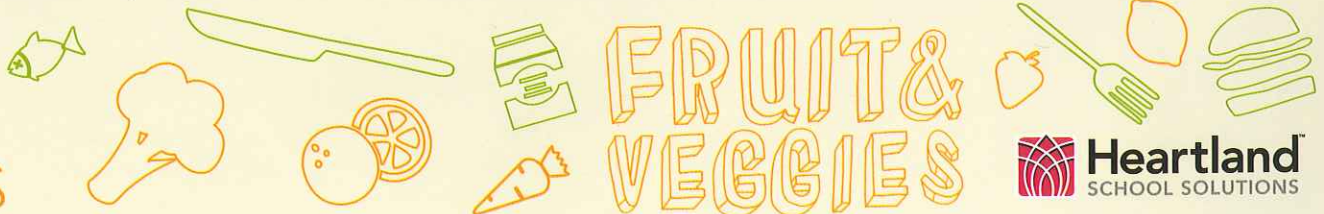 FRUIT&
VEGGIES
Heartland™
SCHOOL SOLUTIONS